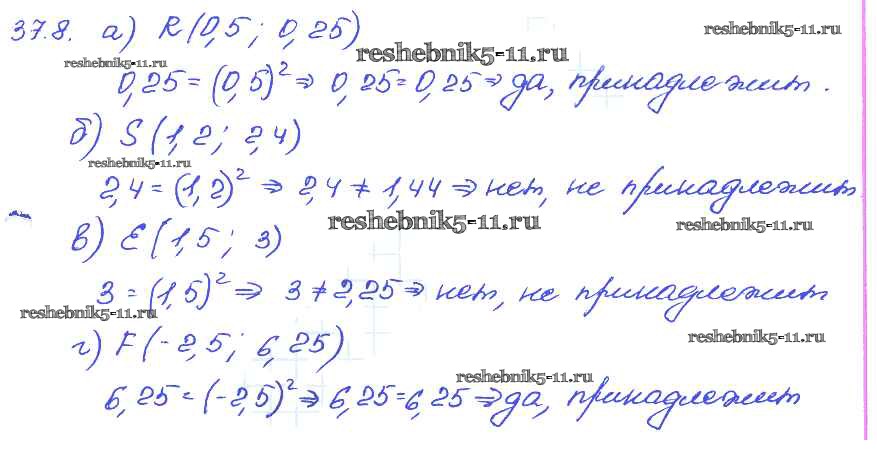 37.8. а) R(0,5; 0,25)
reshebnik5-11.ru
reshebnik5-11.ru
reshebnik5-11.ru
0,25 = (0,5)² ⇒ 0,25 = 0,25 ⇒ да, принадлежит.
б) S(1,2; 2,4)
reshebnik5-11.ru
2,4 = (1,2)² ⇒ 2,4 ≠ 1,44 ⇒ нет, не принадлежит
reshebnik5-11.ru
reshebnik5-11.ru
в) E(1,5; 3)
3 = (1,5)² ⇒ 3 ≠ 2,25 ⇒ нет, не принадлежит
reshebnik5-11.ru
reshebnik5-11.ru
г) F(-2,5; 6,25)
reshebnik5-11.ru
6,25 = (-2,5)² ⇒ 6,25 = 6,25 ⇒ да, принадлежит